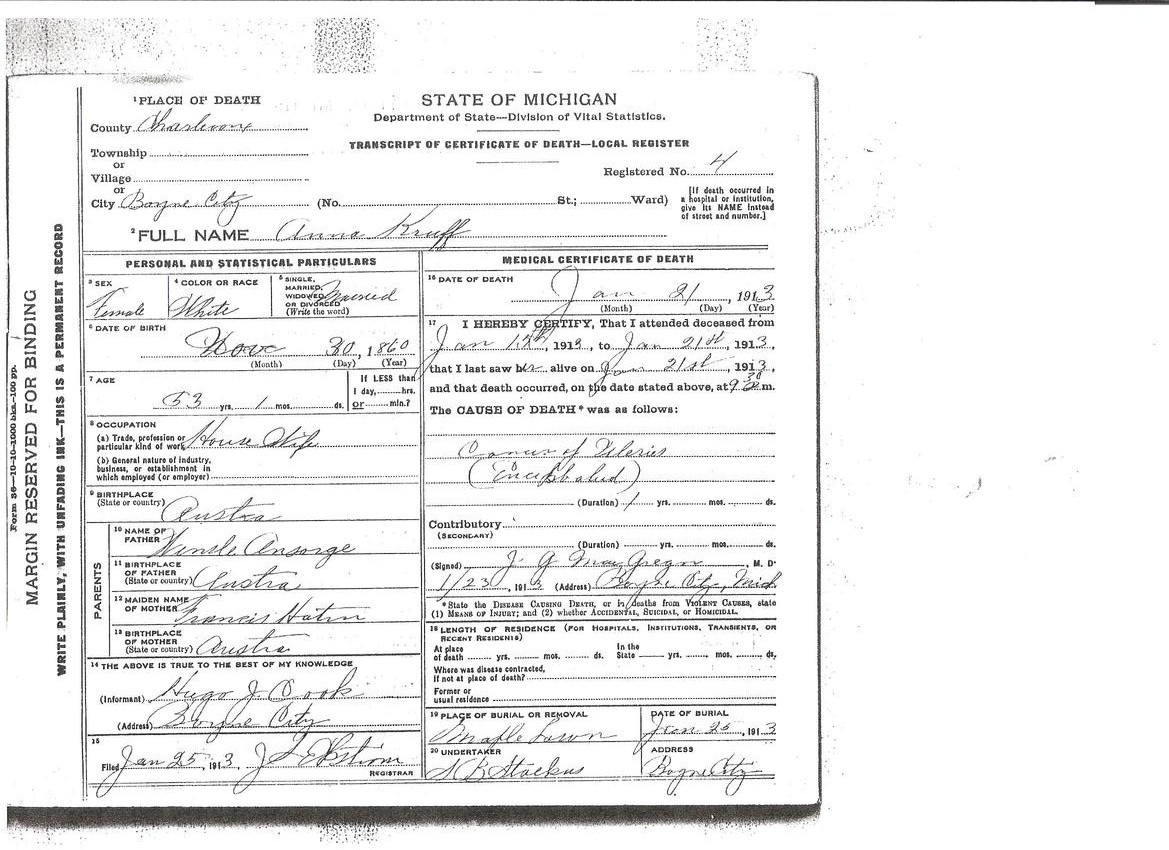 Form 56—10-10-1000 bks—100 pp.
MARGIN RESERVED FOR BINDING
WRITE PLAINLY, WITH UNFADING INK—THIS IS A PERMANENT RECORD
STATE OF MICHIGAN
Department of State—Division of Vital Statistics.
TRANSCRIPT OF CERTIFICATE OF DEATH—LOCAL REGISTER
Registered No. 4
1 PLACE OF DEATH
County Charlevoix
Township
or
Village
or
City Boyne City (No. St.; Ward)
[If death occurred in
a hospital or institution,
give its NAME instead
of street and number.]
2 FULL NAME Anna Kruff
PERSONAL AND STATISTICAL PARTICULARS
3 SEX
Female
4 COLOR OR RACE
White
5 SINGLE,
MARRIED,
WIDOWED
OR DIVORCED
(Write the word)
Married
6 DATE OF BIRTH
Nov 30, 1860
(Month) (Day) (Year)
7 AGE
53 yrs. 1 mos. ds.
If LESS than
1 day, hrs.
or min.?
8 OCCUPATION
(a) Trade, profession or
particular kind of work House Wife
(b) General nature of industry,
business, or establishment in
which employed (or employer)
9 BIRTHPLACE
(State or country)
Austra
PARENTS
10 NAME OF
FATHER
Winsle Ansorge
11 BIRTHPLACE
OF FATHER
(State or country) Austra
12 MAIDEN NAME
OF MOTHER
Francis
13 BIRTHPLACE
OF MOTHER
(State or country) Austra
14 THE ABOVE IS TRUE TO THE BEST OF MY KNOWLEDGE
(Informant) Hugo J. Cook
(Address) Boyne City
15
Filed Jan 25, 1913 Ekstrom
REGISTRAR
MEDICAL CERTIFICATE OF DEATH
16 DATE OF DEATH
Jan 21, 1913
(Month) (Day) (Year)
17 I HEREBY CERTIFY, That I attended deceased from
Jan 15th, 1913, to Jan 21st, 1913,
that I last saw her alive on Jan 21st, 1913,
and that death occurred, on the date stated above, at 9 30 m.
The CAUSE OF DEATH* was as follows:
of
(Duration) 1 yrs. mos. ds.
Contributory
(SECONDARY)
(Duration) yrs. mos. ds.
(Signed) J. G. MacGregor, M. D.
1/23, 1913 (Address) Boyne City, Mich
*State the DISEASE CAUSING DEATH, or in deaths from VIOLENT CAUSES, state
(1) MEANS OF INJURY; and (2) whether ACCIDENTAL, SUICIDAL, or HOMICIDAL.
18 LENGTH OF RESIDENCE (FOR HOSPITALS, INSTITUTIONS, TRANSIENTS, OR
RECENT RESIDENTS)
At place
of death yrs. mos. ds.
In the
State yrs. mos. ds.
Where was disease contracted,
if not at place of death?
Former or
usual residence
19 PLACE OF BURIAL OR REMOVAL
Maple Lawn
DATE OF BURIAL
Jan 25, 1913
20 UNDERTAKER
Stackus
ADDRESS
Boyne City